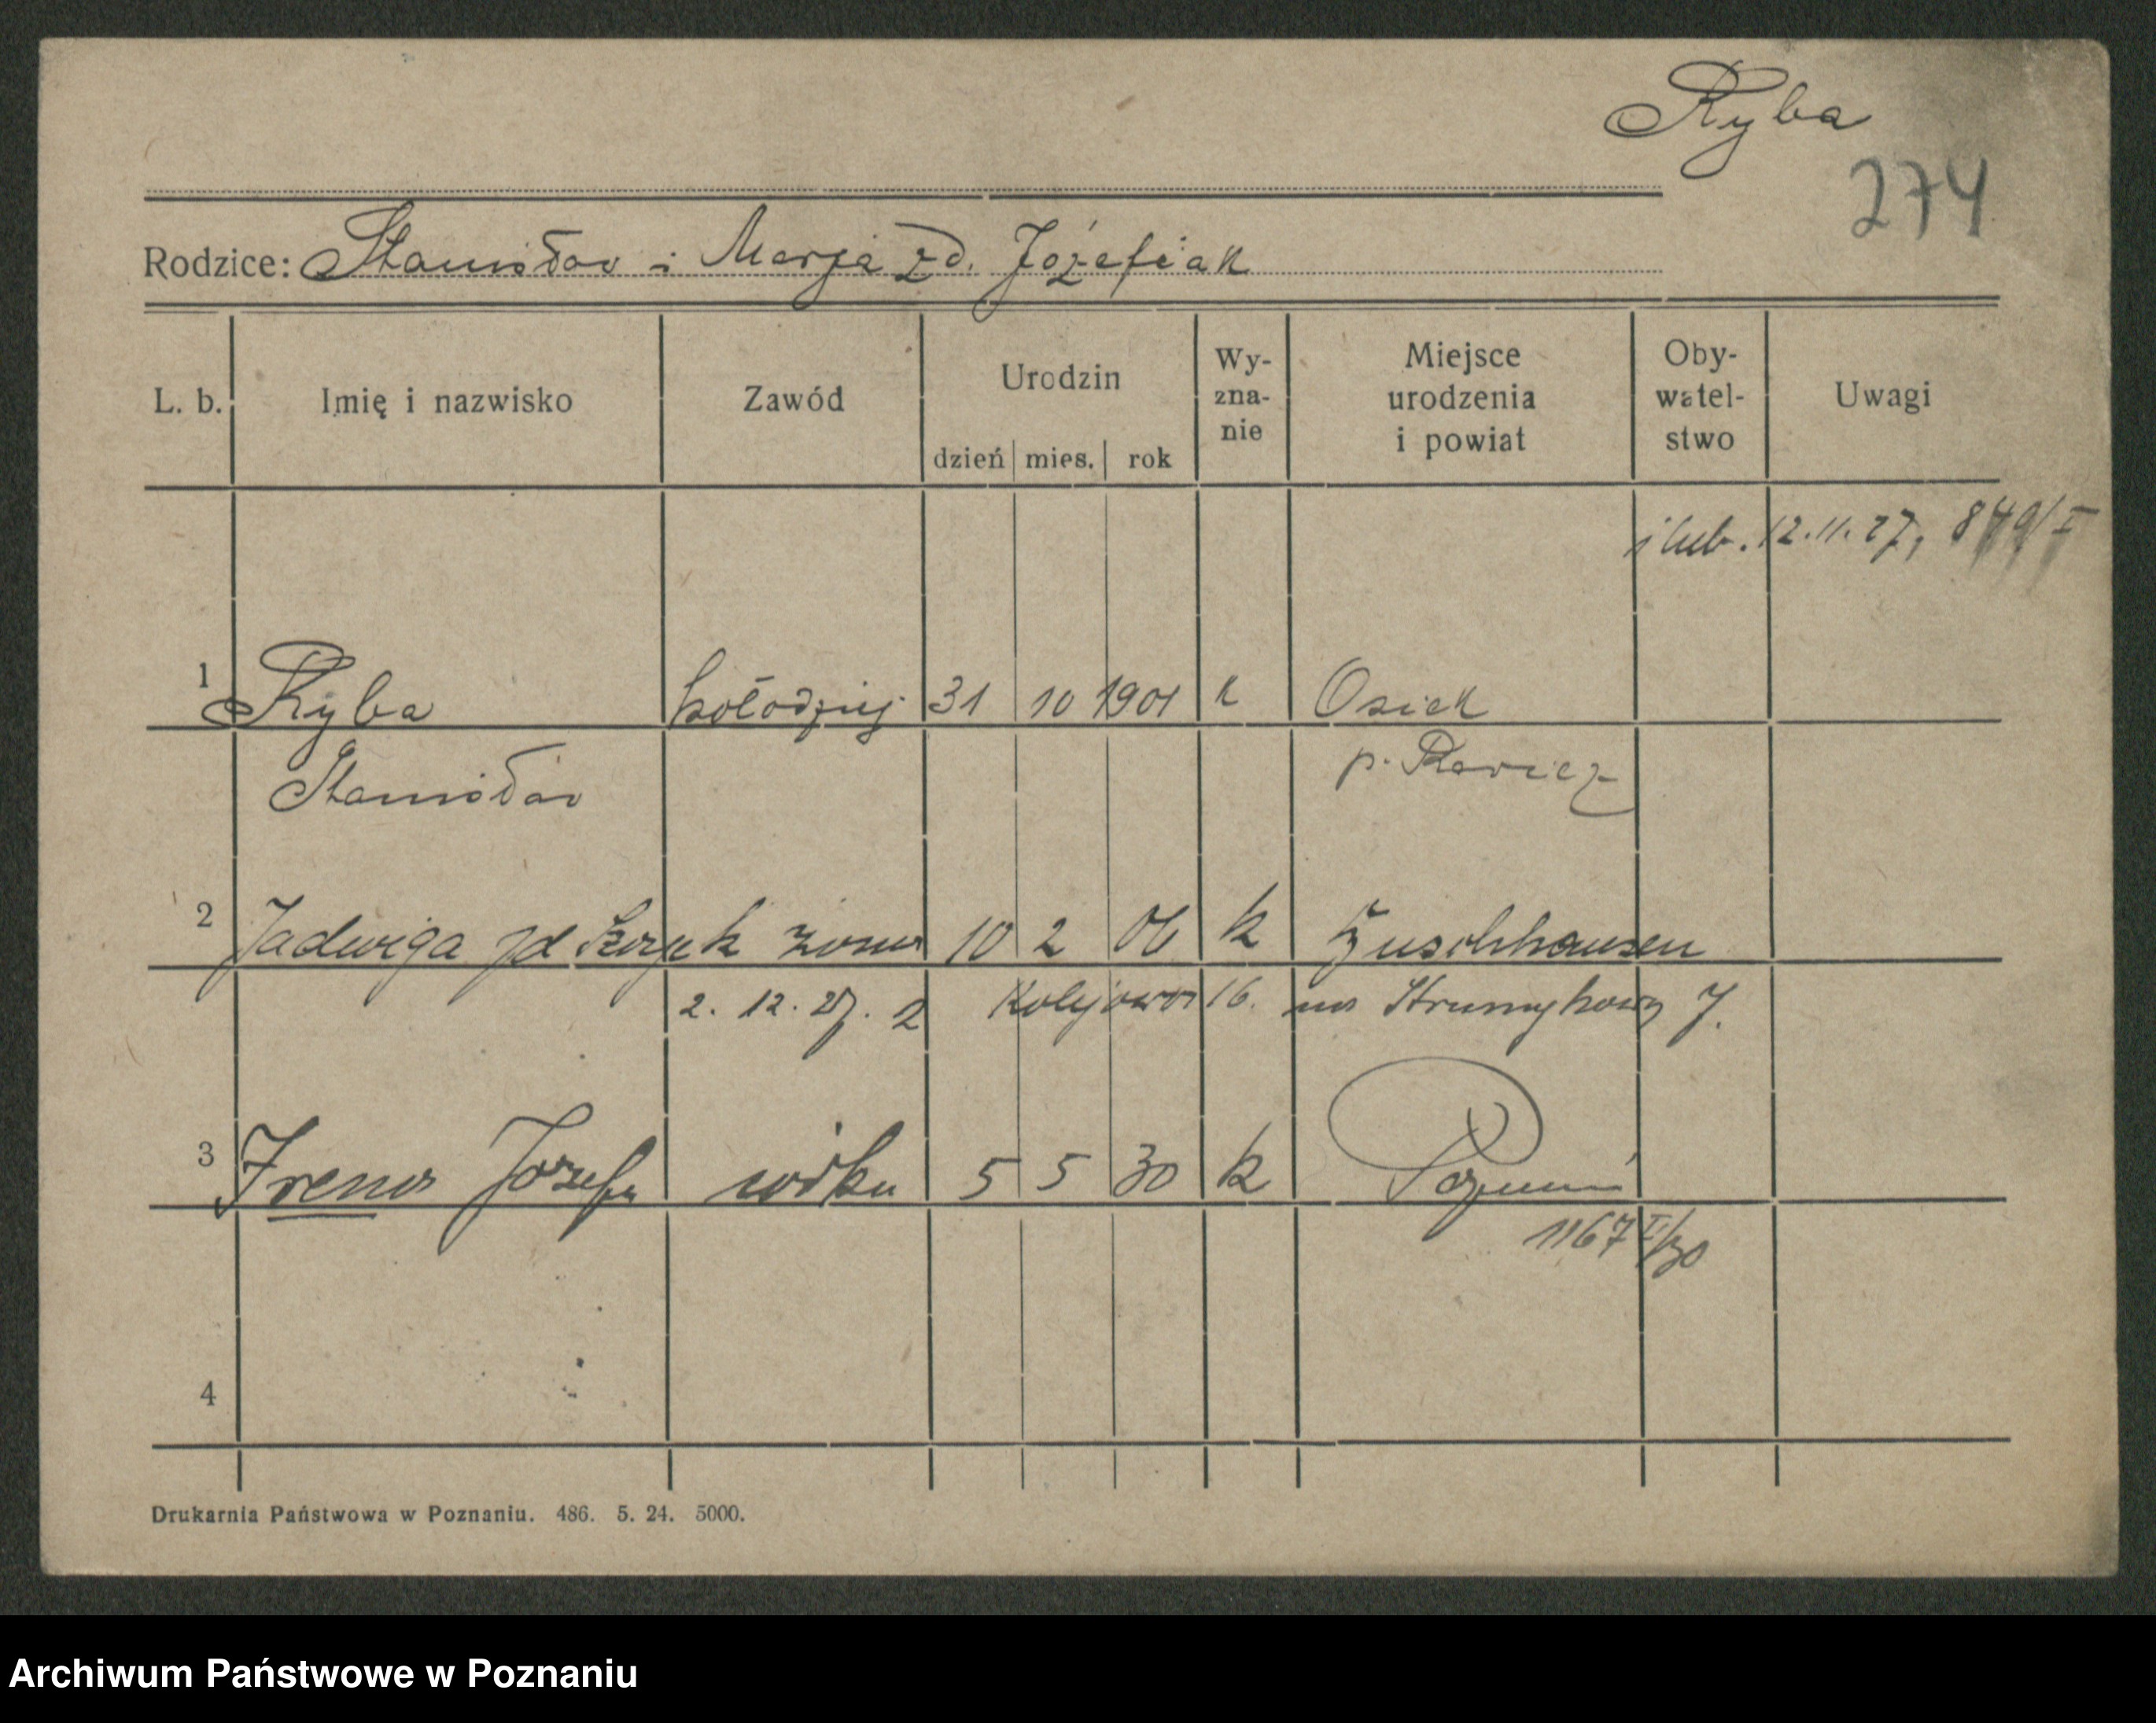 Ryba
274
Rodzice: Stanisław i Marja zd. Józefiak
L. b. Imię i nazwisko Zawód Urodzin dzień mies. rok Wy-zna-nie Miejsce urodzenia i powiat Oby-watel-stwo Uwagi
12.11.27, 849/I
1 Ryba kołodziej 31 10 1901 k Osiek
Stanisław p. Rawicz
2 Jadwiga zd żona 10 2 06 k Zuschhausen
2. 12. 27. z Kolejowa 16. na Strumykową 7.
3 Irena Józefa córka 5 5 30 k Poznań
1167 /30
4
Drukarnia Państwowa w Poznaniu. 486. 5. 24. 5000.
Archiwum Państwowe w Poznaniu